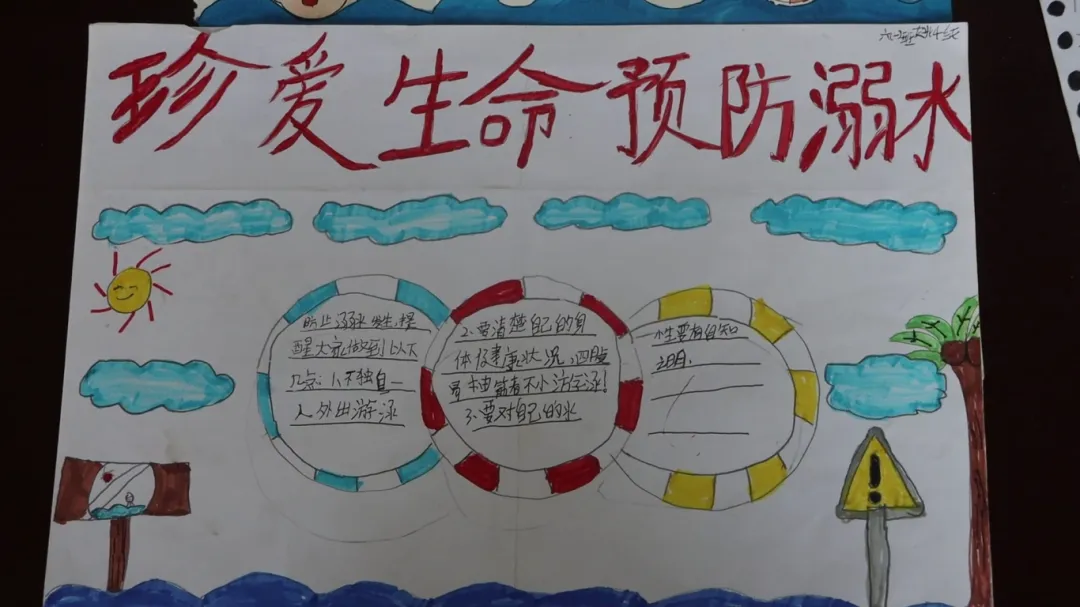 珍爱生命预防溺水
防止溺水发生,提
醒大家做到以下
几点:1.不独自一
人外出游泳
2.要清楚自己的身
体健康状况,四肢
者不小游泳!
3.要对自己的水
性要有自知
之明.